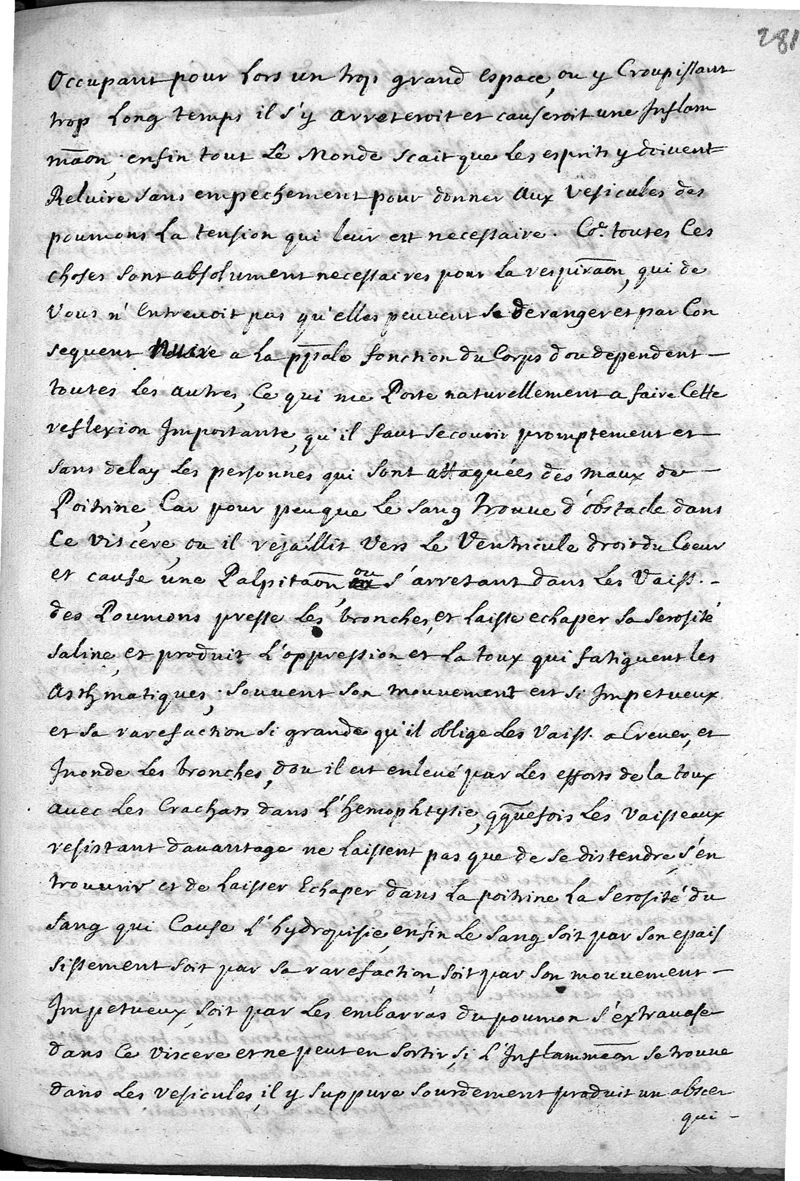 281
Occupant pour Lors un trop grand espace, ou y Croupissant
trop Long temps il s'y arreteroit et causeroit une Inflam
māon, enfin tout Le Monde scait que Les esprits y doivent
Reluire sans empechement pour donner aux vesicules des
poumons La tension qui leur est necessaire. Co.e toutes Ces
choses sont absolument necessaires pour La respirāon, qui de
Vous n'Entrevoit pas qu'elles peuvent se deranger et par Con
sequent nuire a La pp̄ale fonction du Corps dou dependent
toutes Les autres, Ce qui me Porte naturellement a faire Cette
reflexion Importante, qu'il faut secourir promptement et
sans delay Les personnes qui sont attaquées des maux de
Poitrine, Car pour peu que Le sang trouve d'obstacle dans
Ce viscere, ou il rejaillit vers Le Ventricule droit du Coeur
et cause une Palpitāon, ou s'arretant dans Les Vaiss.
des Poumons presse Les bronches, et Laisse echaper sa serosité
saline, et produit L'oppression et La toux qui fatiguent les
asthmatiques, souvent son mouvement est si Impetueux
et sa rarefaction si grande qu'il oblige Les vaiss. a Crever, et
Inonde Les bronches, dou il est enlevé par Les efforts de la toux
avec Les Crachats dans L'hemophtysie, qq̄uefois Les vaisseaux
resistant davantage ne Laissent pas que de se distendre, s'en
trouvrir et de Laisser Echaper dans La poitrine La serosité du
sang qui Cause L'hydropisie, enfin Le sang soit par son epais
sissement soit par sa rarefaction, soit par son mouvement
Impetueux, soit par Les embarras du poumon s'extravase
dans Ce viscere et ne peut en sortir, si L'Inflammāon se trouve
dans Les vesicules, il y suppure sourdement produit un absces
qui